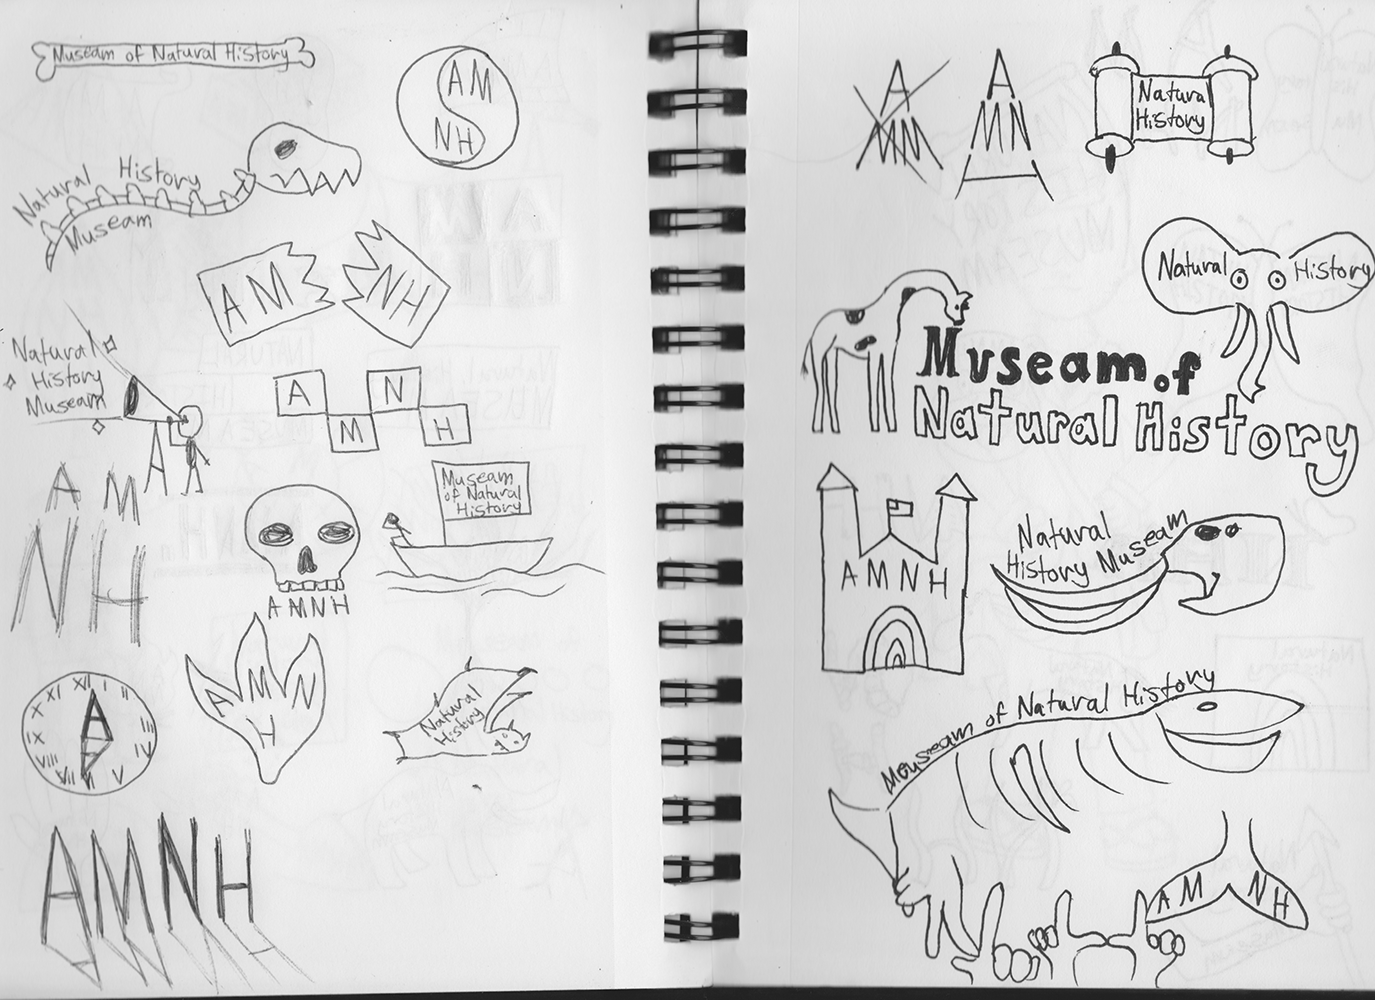 Museam of Natural History
AM
NH
Natural History
Museam
AM
NH
Natural
History
Museam
A
N
M
H
A M
NH
Museam
of Natural
History
AMNH
XII I II IV V VII VIII IX X XI
A
A M N
H
Natural
History
AMNH
A
MN
A
MN
Natural
History
Natural History
Museam of
Natural History
AMNH
Natural
History Museam
Mouseam of Natural History
AM NH